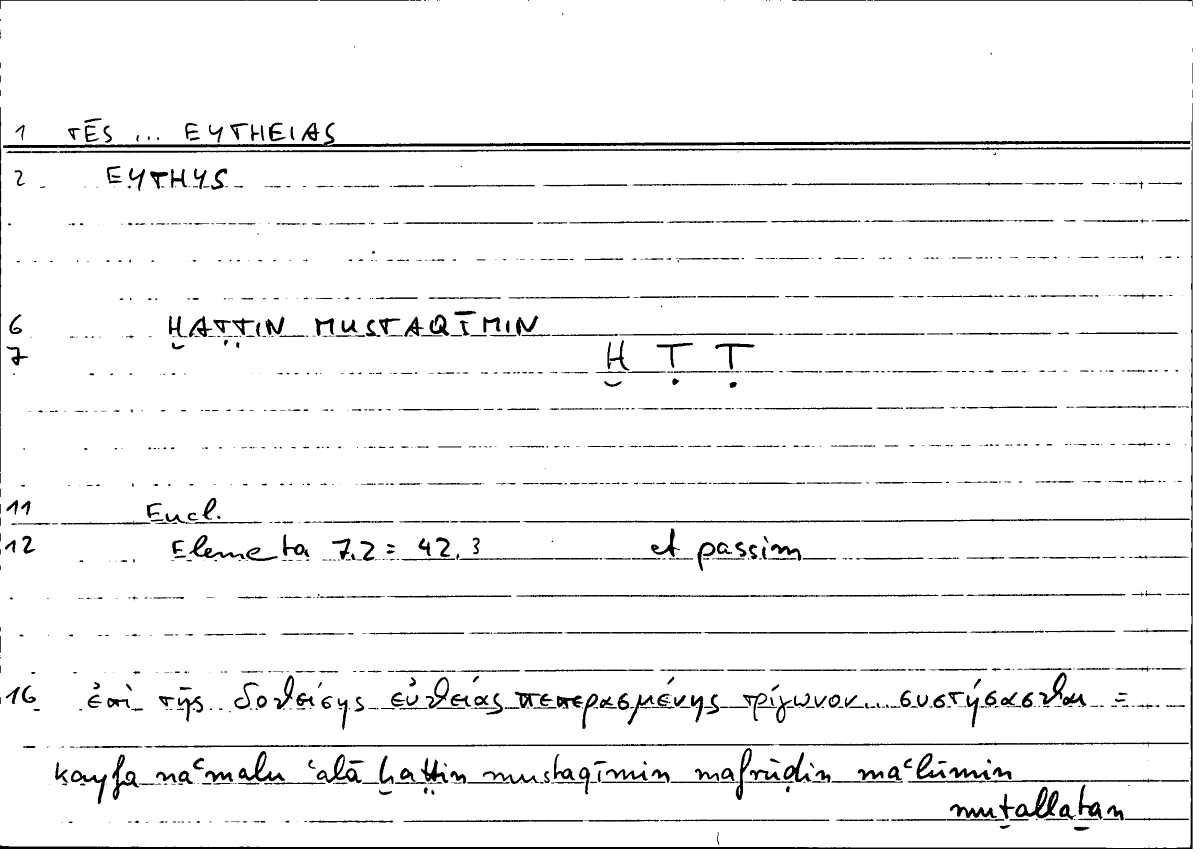 1 TĒS ... EYTHEIAS
2 EYTHYS
6 ḪAṬṬIN MUSTAQĪMIN
7 Ḫ Ṭ Ṭ
11 Eucl.
12 Elementa 7.2 = 42.3 et passim
16 ἐπὶ τῆς δοθείσης εὐθείας πεπερασμένης τρίγωνον ... συστήσασθαι =
kayfa naʿmalu ʿalā ḫaṭṭin mustaqīmin mafrūḍin maʿlūmin
muṯallaṯan